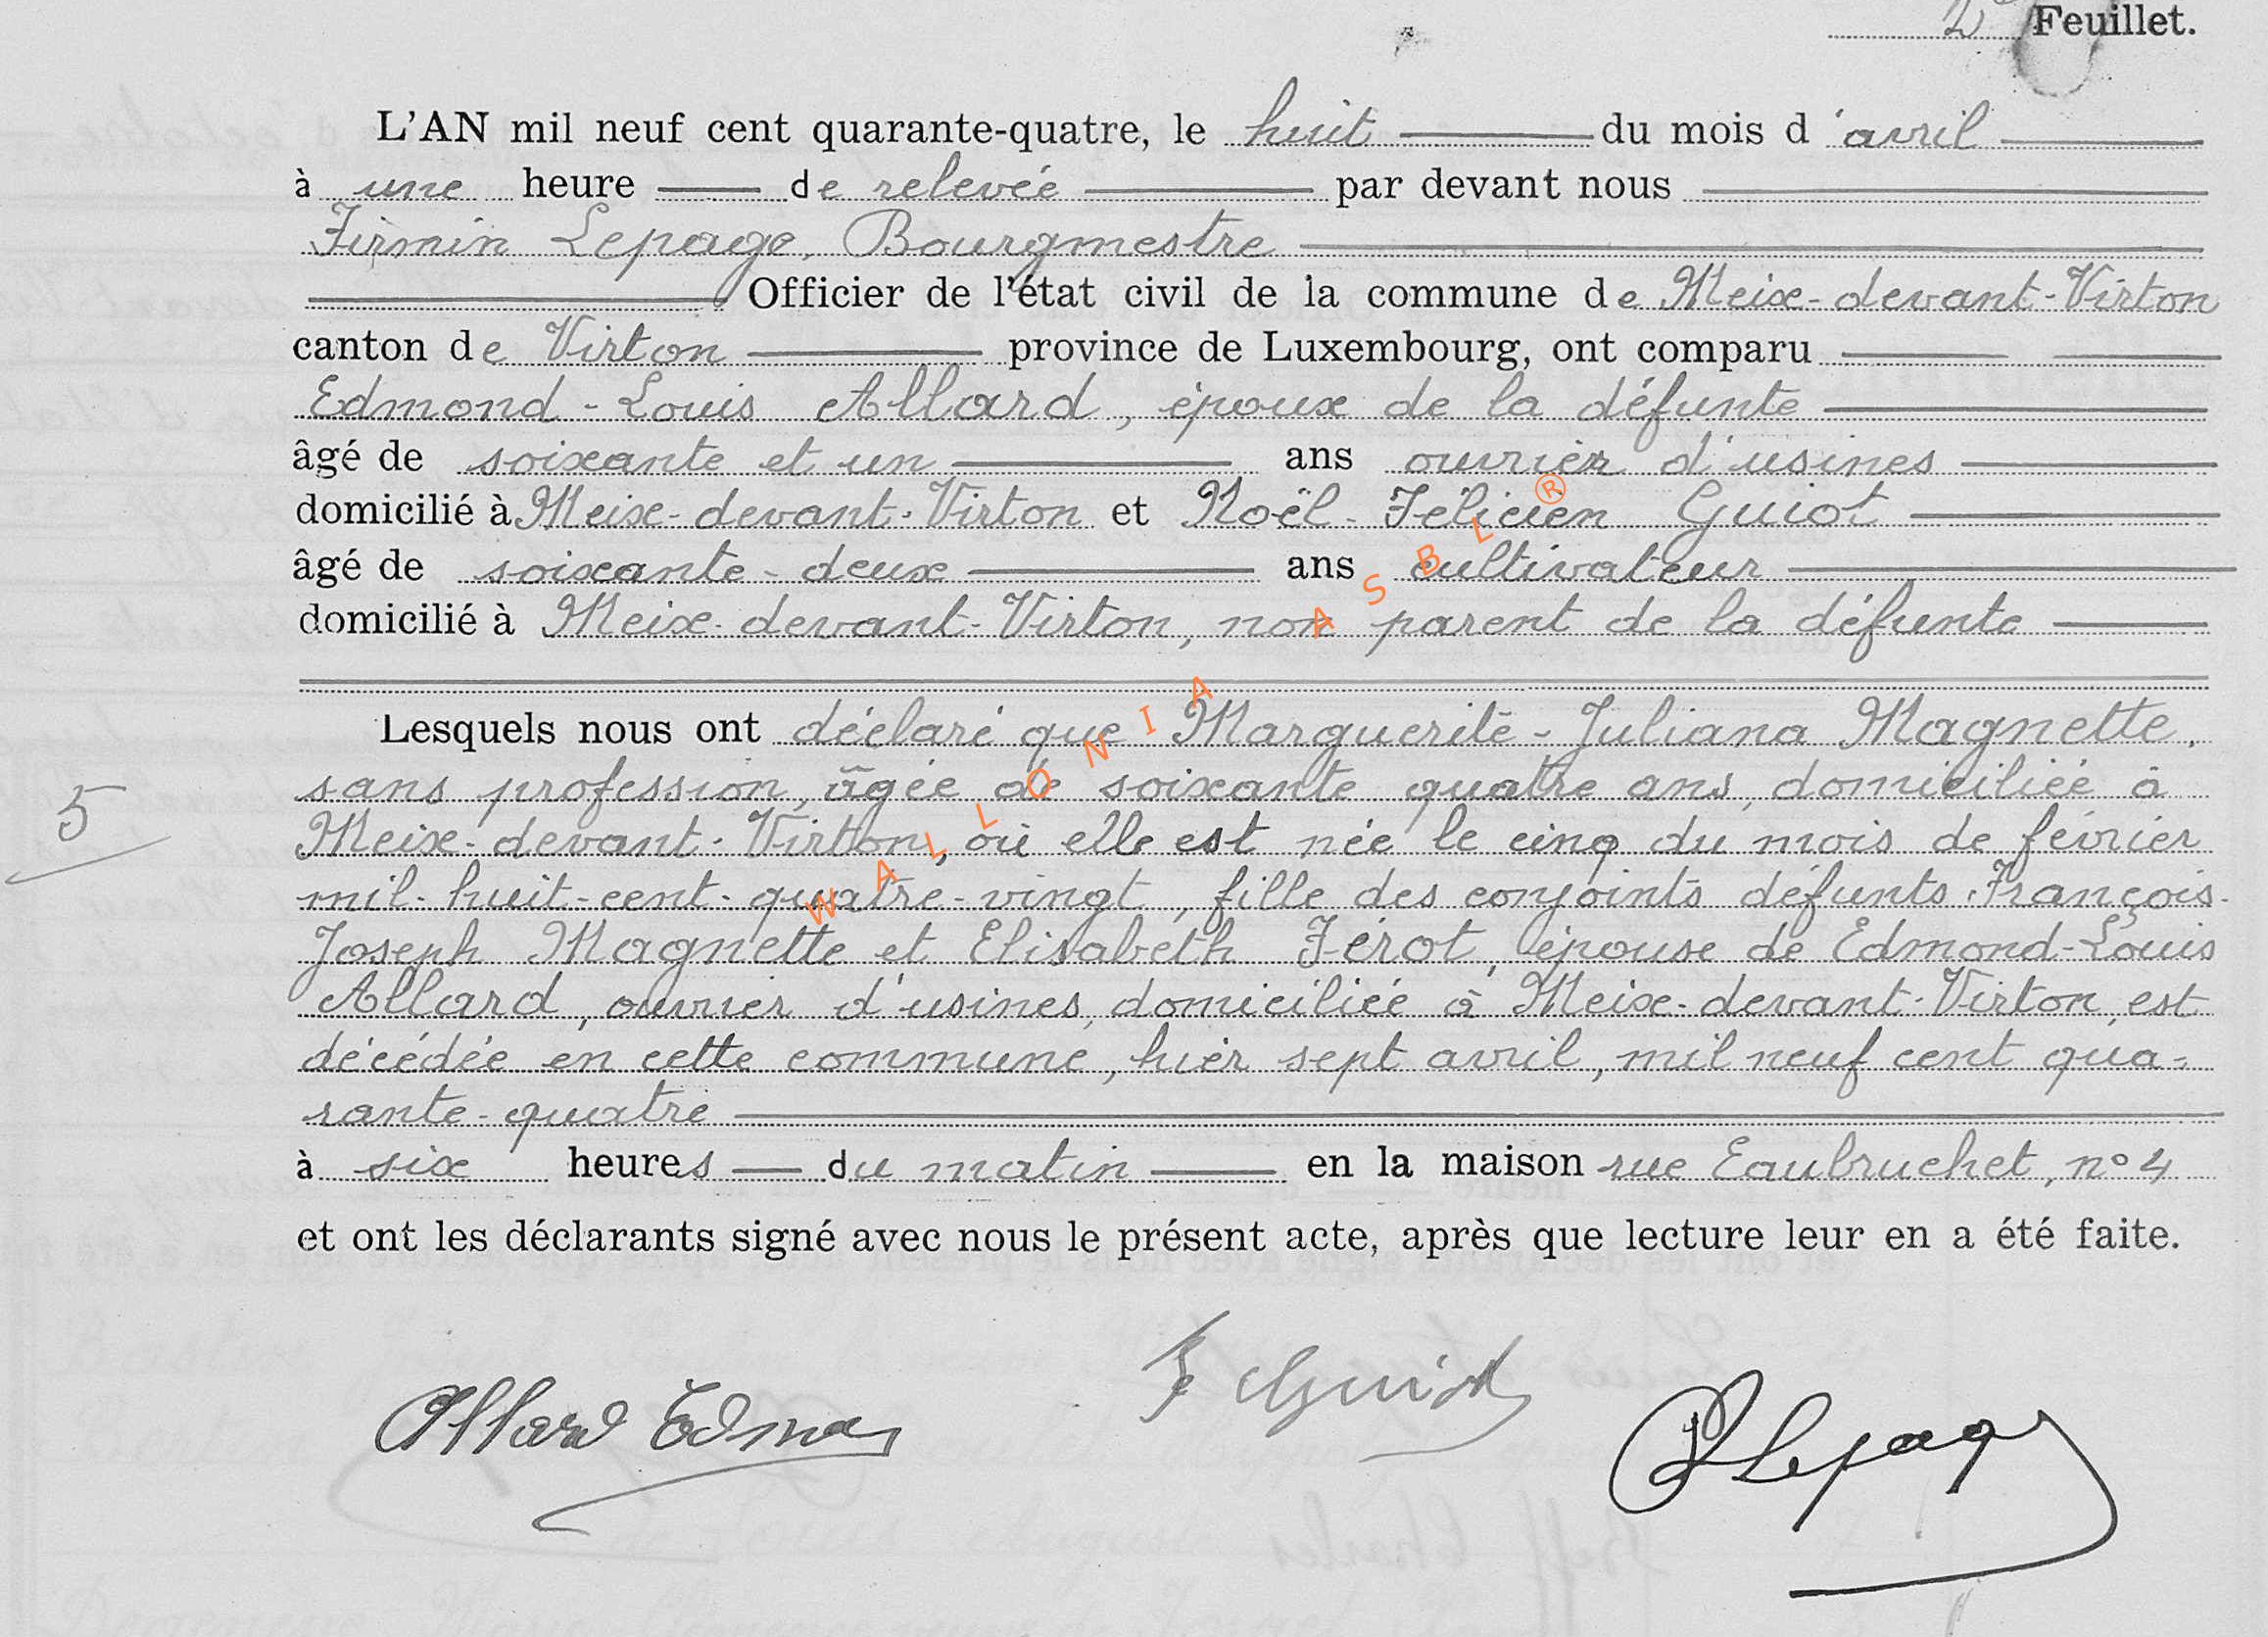 2e Feuillet.
L'AN mil neuf cent quarante-quatre, le huit du mois d'avril
à une heure de relevée par devant nous
Firmin Lepage, Bourgmestre
Officier de l'état civil de la commune de Meix-devant-Virton
canton de Virton province de Luxembourg, ont comparu
Edmond-Louis Allard, époux de la défunte
âgé de soixante et un ans ouvrier d'usines
domicilié à Meix-devant-Virton et Noël-Félicien Guiot
âgé de soixante-deux ans cultivateur
domicilié à Meix-devant-Virton, non parent de la défunte
Lesquels nous ont déclaré que Marguerite-Juliana Magnette,
sans profession, âgée de soixante quatre ans, domiciliée à
5
Meix-devant-Virton, où elle est née le cinq du mois de février
mil-huit-cent-quatre-vingt, fille des conjoints défunts François-
Joseph Magnette et Elisabeth Férot, épouse de Edmond-Louis
Allard, ouvrier d'usines, domiciliée à Meix-devant-Virton, est
décédée en cette commune, hier sept avril, mil neuf cent qua-
rante-quatre
à six heures du matin en la maison rue Eaubruchet, n° 4
et ont les déclarants signé avec nous le présent acte, après que lecture leur en a été faite.
Allard Edmon
Guiot
Lepage
WALLONIA ASBL ®